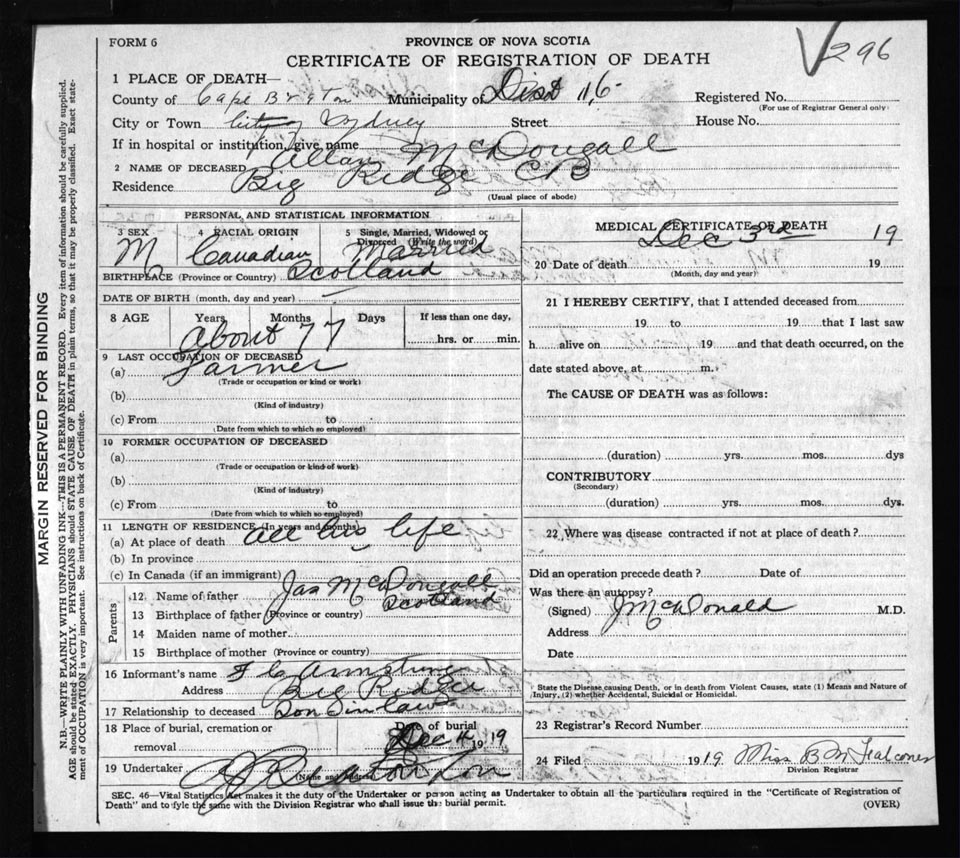 V296
FORM 6
PROVINCE OF NOVA SCOTIA
CERTIFICATE OF REGISTRATION OF DEATH
1 PLACE OF DEATH—
County of Cape Breton Municipality of Dist 11,6 Registered No.
(For use of Registrar General only)
City or Town City of Sydney Street House No.
If in hospital or institution, give name
2 NAME OF DECEASED Allan McDougall
Residence Big Ridge CB
(Usual place of abode)
PERSONAL AND STATISTICAL INFORMATION
3 SEX 4 RACIAL ORIGIN 5 Single, Married, Widowed or Divorced (Write the word)
M Canadian Married
BIRTHPLACE (Province or Country) Scotland
DATE OF BIRTH (month, day and year)
8 AGE Years Months Days If less than one day,
About 77 hrs. or min.
9 LAST OCCUPATION OF DECEASED
(a) Farmer
(Trade or occupation or kind or work)
(b)
(Kind of industry)
(c) From to
(Date from which to which so employed)
10 FORMER OCCUPATION OF DECEASED
(a)
(Trade or occupation or kind of work)
(b)
(Kind of industry)
(c) From to
(Date from which to which so employed)
11 LENGTH OF RESIDENCE (In years and months)
(a) At place of death all his life
(b) In province
(c) In Canada (if an immigrant)
Parents
12 Name of father Jas McDougall
13 Birthplace of father (Province or country) Scotland
14 Maiden name of mother
15 Birthplace of mother (Province or country)
16 Informant's name F C Armstrong
Address Big Ridge
17 Relationship to deceased Son in law
18 Place of burial, cremation or removal Date of burial
Dec 4, 1919
19 Undertaker
(Name and address)
MEDICAL CERTIFICATE OF DEATH
Dec 3rd 19
20 Date of death 19
(Month, day and year)
21 I HEREBY CERTIFY, that I attended deceased from
19 to 19 that I last saw
h alive on 19 and that death occurred, on the
date stated above, at m.
The CAUSE OF DEATH was as follows:
(duration) yrs. mos. dys
CONTRIBUTORY
(Secondary)
(duration) yrs. mos. dys.
22 Where was disease contracted if not at place of death?
Did an operation precede death? Date of
Was there an autopsy?
(Signed) J McDonald M.D.
Address
Date
State the Disease causing Death, or in death from Violent Causes, state (1) Means and Nature of
Injury, (2) whether Accidental, Suicidal or Homicidal.
23 Registrar's Record Number
24 Filed 1919 Miss B M Falconer
Division Registrar
SEC. 46—Vital Statistics Act makes it the duty of the Undertaker or person acting as Undertaker to obtain all the particulars required in the "Certificate of Registration of
Death" and to fyle the same with the Division Registrar who shall issue the burial permit.
(OVER)
MARGIN RESERVED FOR BINDING
N.B.—WRITE PLAINLY WITH UNFADING INK—THIS IS A PERMANENT RECORD. Every item of information should be carefully supplied.
AGE should be stated EXACTLY. PHYSICIANS should STATE CAUSE OF DEATH in plain terms, so that it may be properly classified. Exact state-
ment of OCCUPATION is very important. See instructions on back of Certificate.